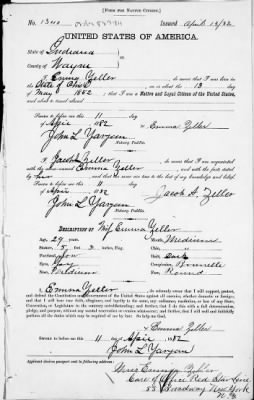 [FORM FOR NATIVE CITIZEN.]
No. 1340 Issued April 13/82
UNITED STATES OF AMERICA.
State of Indiana
County of Wayne
I, Emma Zeller, do swear that I was born in
the State of Ohio on the 13 day of
May 1852 that I am a Native and Loyal Citizen of the United States,
and about to travel abroad.
Sworn to before me this 11 day
of April 1882 Emma Zeller
John L Yaryan
Notary Public.
I, Jacob A Zeller, do swear that I am acquainted
with the above-named Emma Zeller and with the facts stated
by her, and that the same are true to the best of my knowledge and belief.
Sworn to before me this 11 day
of April 1882 Jacob A. Zeller
John L Yaryan
Notary Public.
Description of Emma Zeller
Age: 29 years. Mouth: Medium
Stature: 5 feet inches, Eng. Chin:
Forehead: Low Hair: Dark
Eyes: Complexion: Brunette
Nose: Medium Face: Round
I, Emma Zeller, do solemnly swear that I will support, protect, and
defend the Constitution and Government of the United States against all enemies, whether domestic or foreign;
and that I will bear true faith, allegiance, and loyalty to the same, any ordinance, resolution, or law of any State,
Convention, or Legislature to the contrary notwithstanding; and further, that I do this with a full determination,
pledge, and purpose, without any mental reservation or evasion whatsoever; and further, that I will well and faithfully
perform all the duties which may be required of me by law: So help me God.
Emma Zeller
Sworn to before me this 11 day of April 1882
John L Yaryan
Applicant desires passport sent to following address:
Miss Emma Zeller
Care of Office Red Star Line
55 Broadway New York
N.Y.